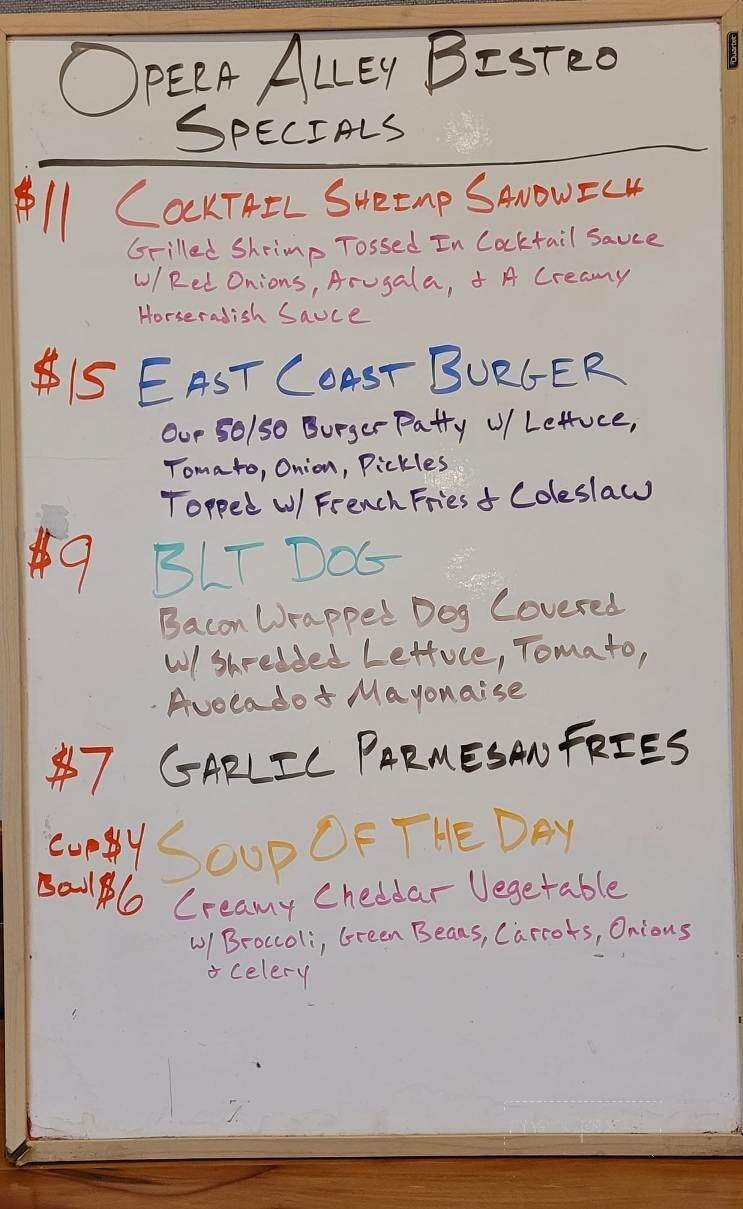 Quartet
OPERA ALLEY BISTRO
SPECIALS
$11 COCKTAIL SHRIMP SANDWICH
Grilled Shrimp Tossed In Cocktail Sauce
w/ Red Onions, Arugala, & A Creamy
Horseradish Sauce
$15 EAST COAST BURGER
Our 50/50 Burger Patty w/ Lettuce,
Tomato, Onion, Pickles
Topped w/ French Fries & Coleslaw
$9 BLT DOG
Bacon Wrapped Dog Covered
w/ Shredded Lettuce, Tomato,
Avocado & Mayonaise
$7 GARLIC PARMESAN FRIES
Cup $4 SOUP OF THE DAY
Bowl $6 Creamy Cheddar Vegetable
w/ Broccoli, Green Beans, Carrots, Onions
& Celery